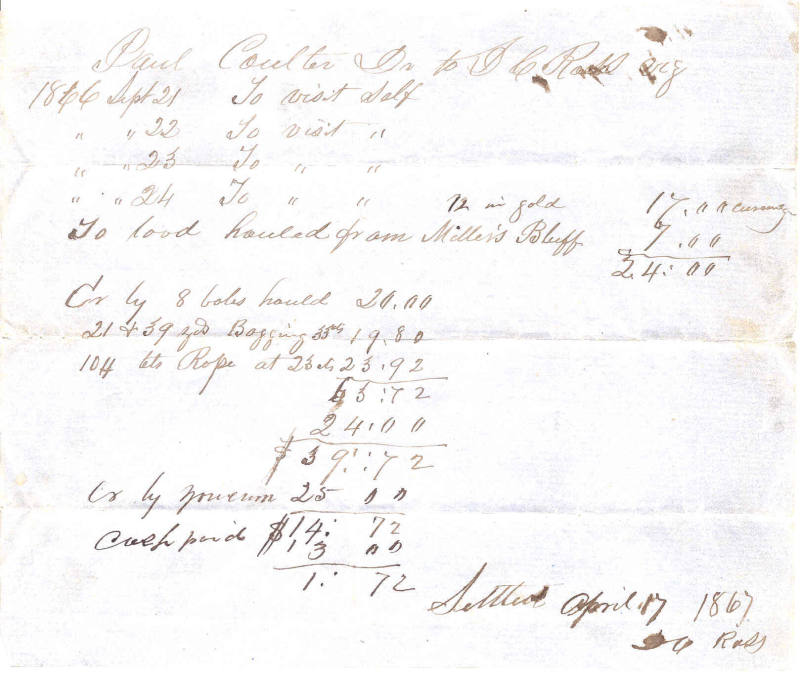 Paul Coulter Dr to J C Ross
1866 Sept 21 To visit Self
" " 22 To visit "
" " 23 To " "
" " 24 To " " 12 in gold 17.00 currency
To load hauled from Miller's Bluff 7.00
24:00
Cr by 8 bales hauld 20.00
21 & 39 yds Bagging 33cts 19.80
104 lbs Rope at 23 cts 23.92
63:72
24:00
$ 39:72
Cr by 25 00
$14: 72
Cash paid 13 00
1: 72
Settled April 17 1867
Ross